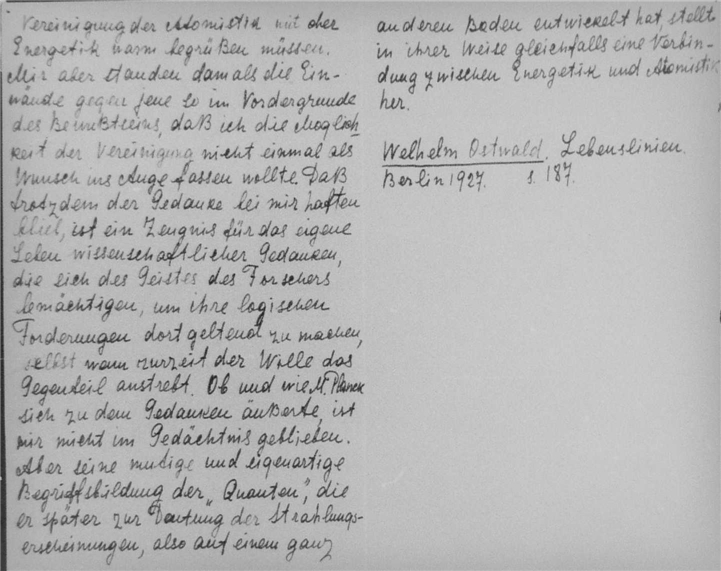 Vereinigung der Atomistik mit der
Energetik warm begrüßen müssen.
Mir aber standen damals die Ein-
wände gegen jene so im Vordergrunde
des Bewußtseins, daß ich die Möglich
keit der Vereinigung nicht einmal als
Wunsch ins Auge fassen wollte. Daß
trotzdem der Gedanke bei mir haften
blieb, ist ein Zeugnis für das eigene
Leben wissenschaftlicher Gedanken,
die sich des Geistes des Forschers
bemächtigen, um ihre logischen
Forderungen dort geltend zu machen,
selbst wann zurzeit der Wille das
Gegenteil anstrebt. Ob und wie M. Planck
sich zu dem Gedanken äußerte, ist
mir nicht im Gedächtnis geblieben.
Aber seine mutige und eigenartige
Begriffsbildung der „Quanten", die
er später zur Deutung der Strahlungs-
erscheinungen, also auf einem ganz
anderen Boden entwickelt hat, stellt
in ihrer Weise gleichfalls eine Verbin-
dung zwischen Energetik und Atomistik
her.
Welhelm Ostwald. Lebenslinien.
Berlin 1927. s. 187.